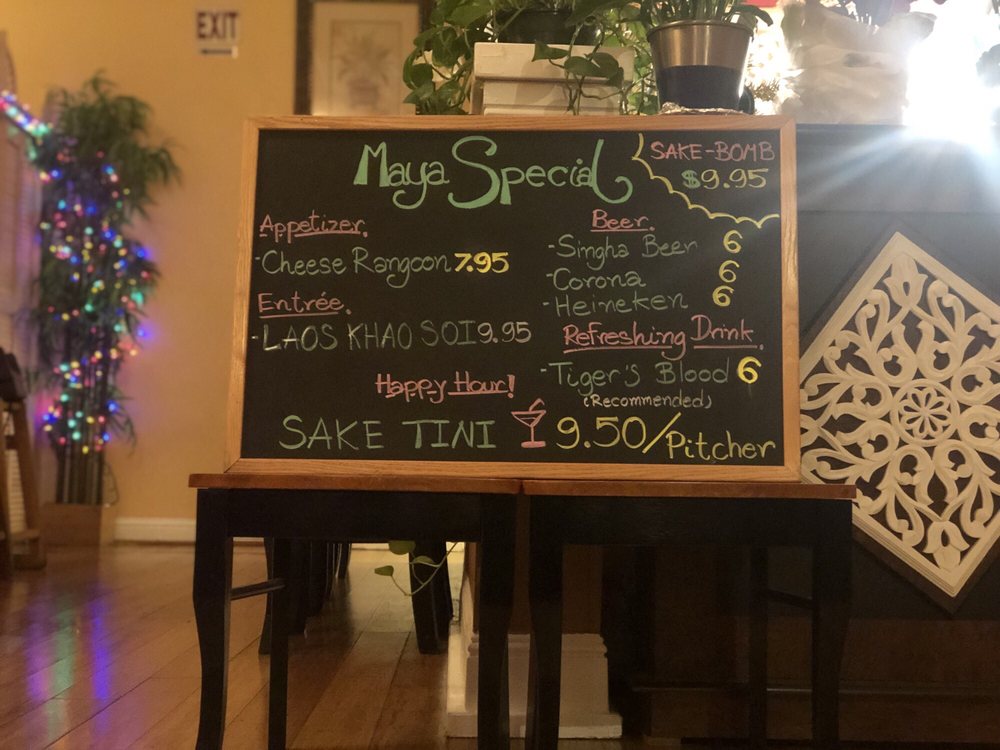 EXIT
Maya Special
SAKE-BOMB
$9.95
Appetizer.
-Cheese Rangoon 7.95
Entrée.
-LAOS KHAO SOI 9.95
Beer.
-Singha Beer 6
-Corona 6
-Heineken 6
Refreshing Drink.
-Tiger's Blood 6
(Recommended)
Happy Hour!
SAKE TINI 9.50/Pitcher